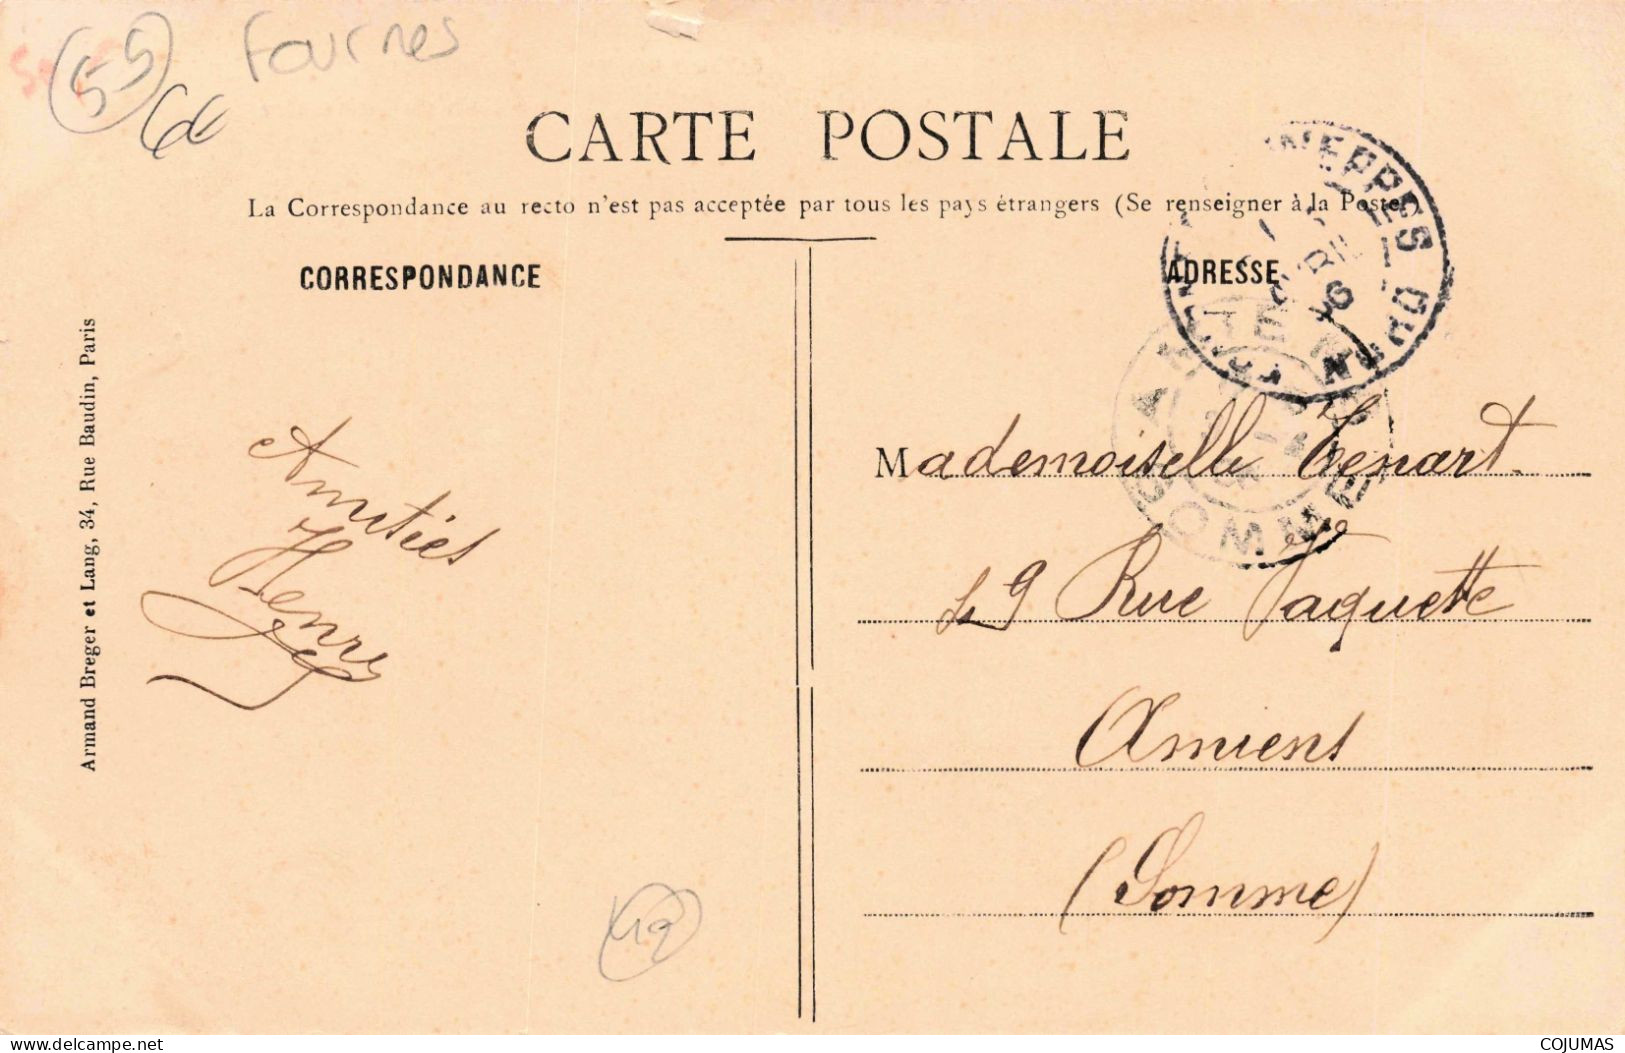 55
Fournes
CARTE POSTALE
La Correspondance au recto n'est pas acceptée par tous les pays étrangers (Se renseigner à la Poste)
CORRESPONDANCE
ADRESSE
SOMME
Armand Breger et Lang, 34, Rue Baudin, Paris
Amitiés
Henri
Mademoiselle Tenart.
49 Rue Vaquette
Amiens
(Somme)
49
delcampe.net
COJUMAS